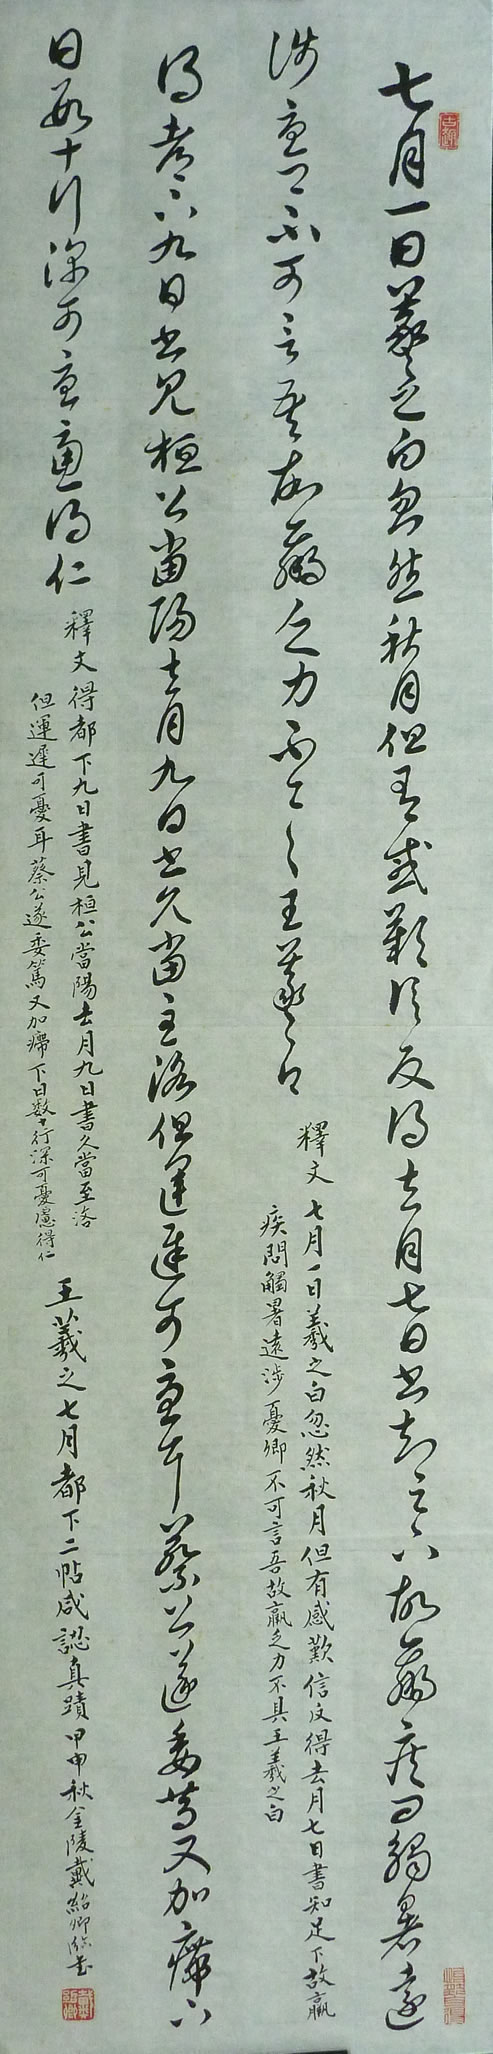 七月一日羲之白忽然秋月但有感歎信反得去月七日書知足下故羸疾問觸暑遠
涉憂卿不可言吾故羸乏力不具王羲之白
釋文 七月一日羲之白忽然秋月但有感歎信反得去月七日書知足下故羸
疾問觸暑遠涉憂卿不可言吾故羸乏力不具王羲之白
得都下九日書見桓公當陽去月九日書久當至洛但運遲可憂耳蔡公遂委篤又加㿃下
日數十行深可憂慮得仁
釋文 得都下九日書見桓公當陽去月九日書久當至洛
但運遲可憂耳蔡公遂委篤又加㿃下日数十行深可憂慮得仁
王羲之七月都下二帖咸認真蹟甲申秋金陵戴紹卿臨書